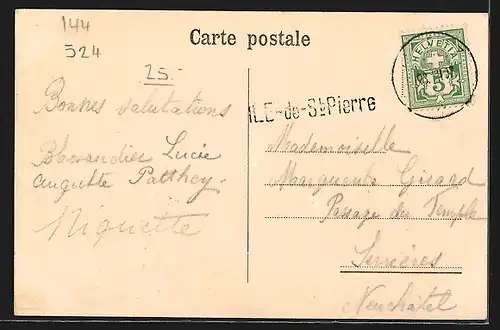 144
524
Carte postale
HELVETIA
5
25.-
ILE-de-St-Pierre
Bonnes salutations
Lucie
Auguste Patthey
Niquette
Mademoiselle
Marguerite Girard
Passage du Temple
Serrières
Neuchâtel